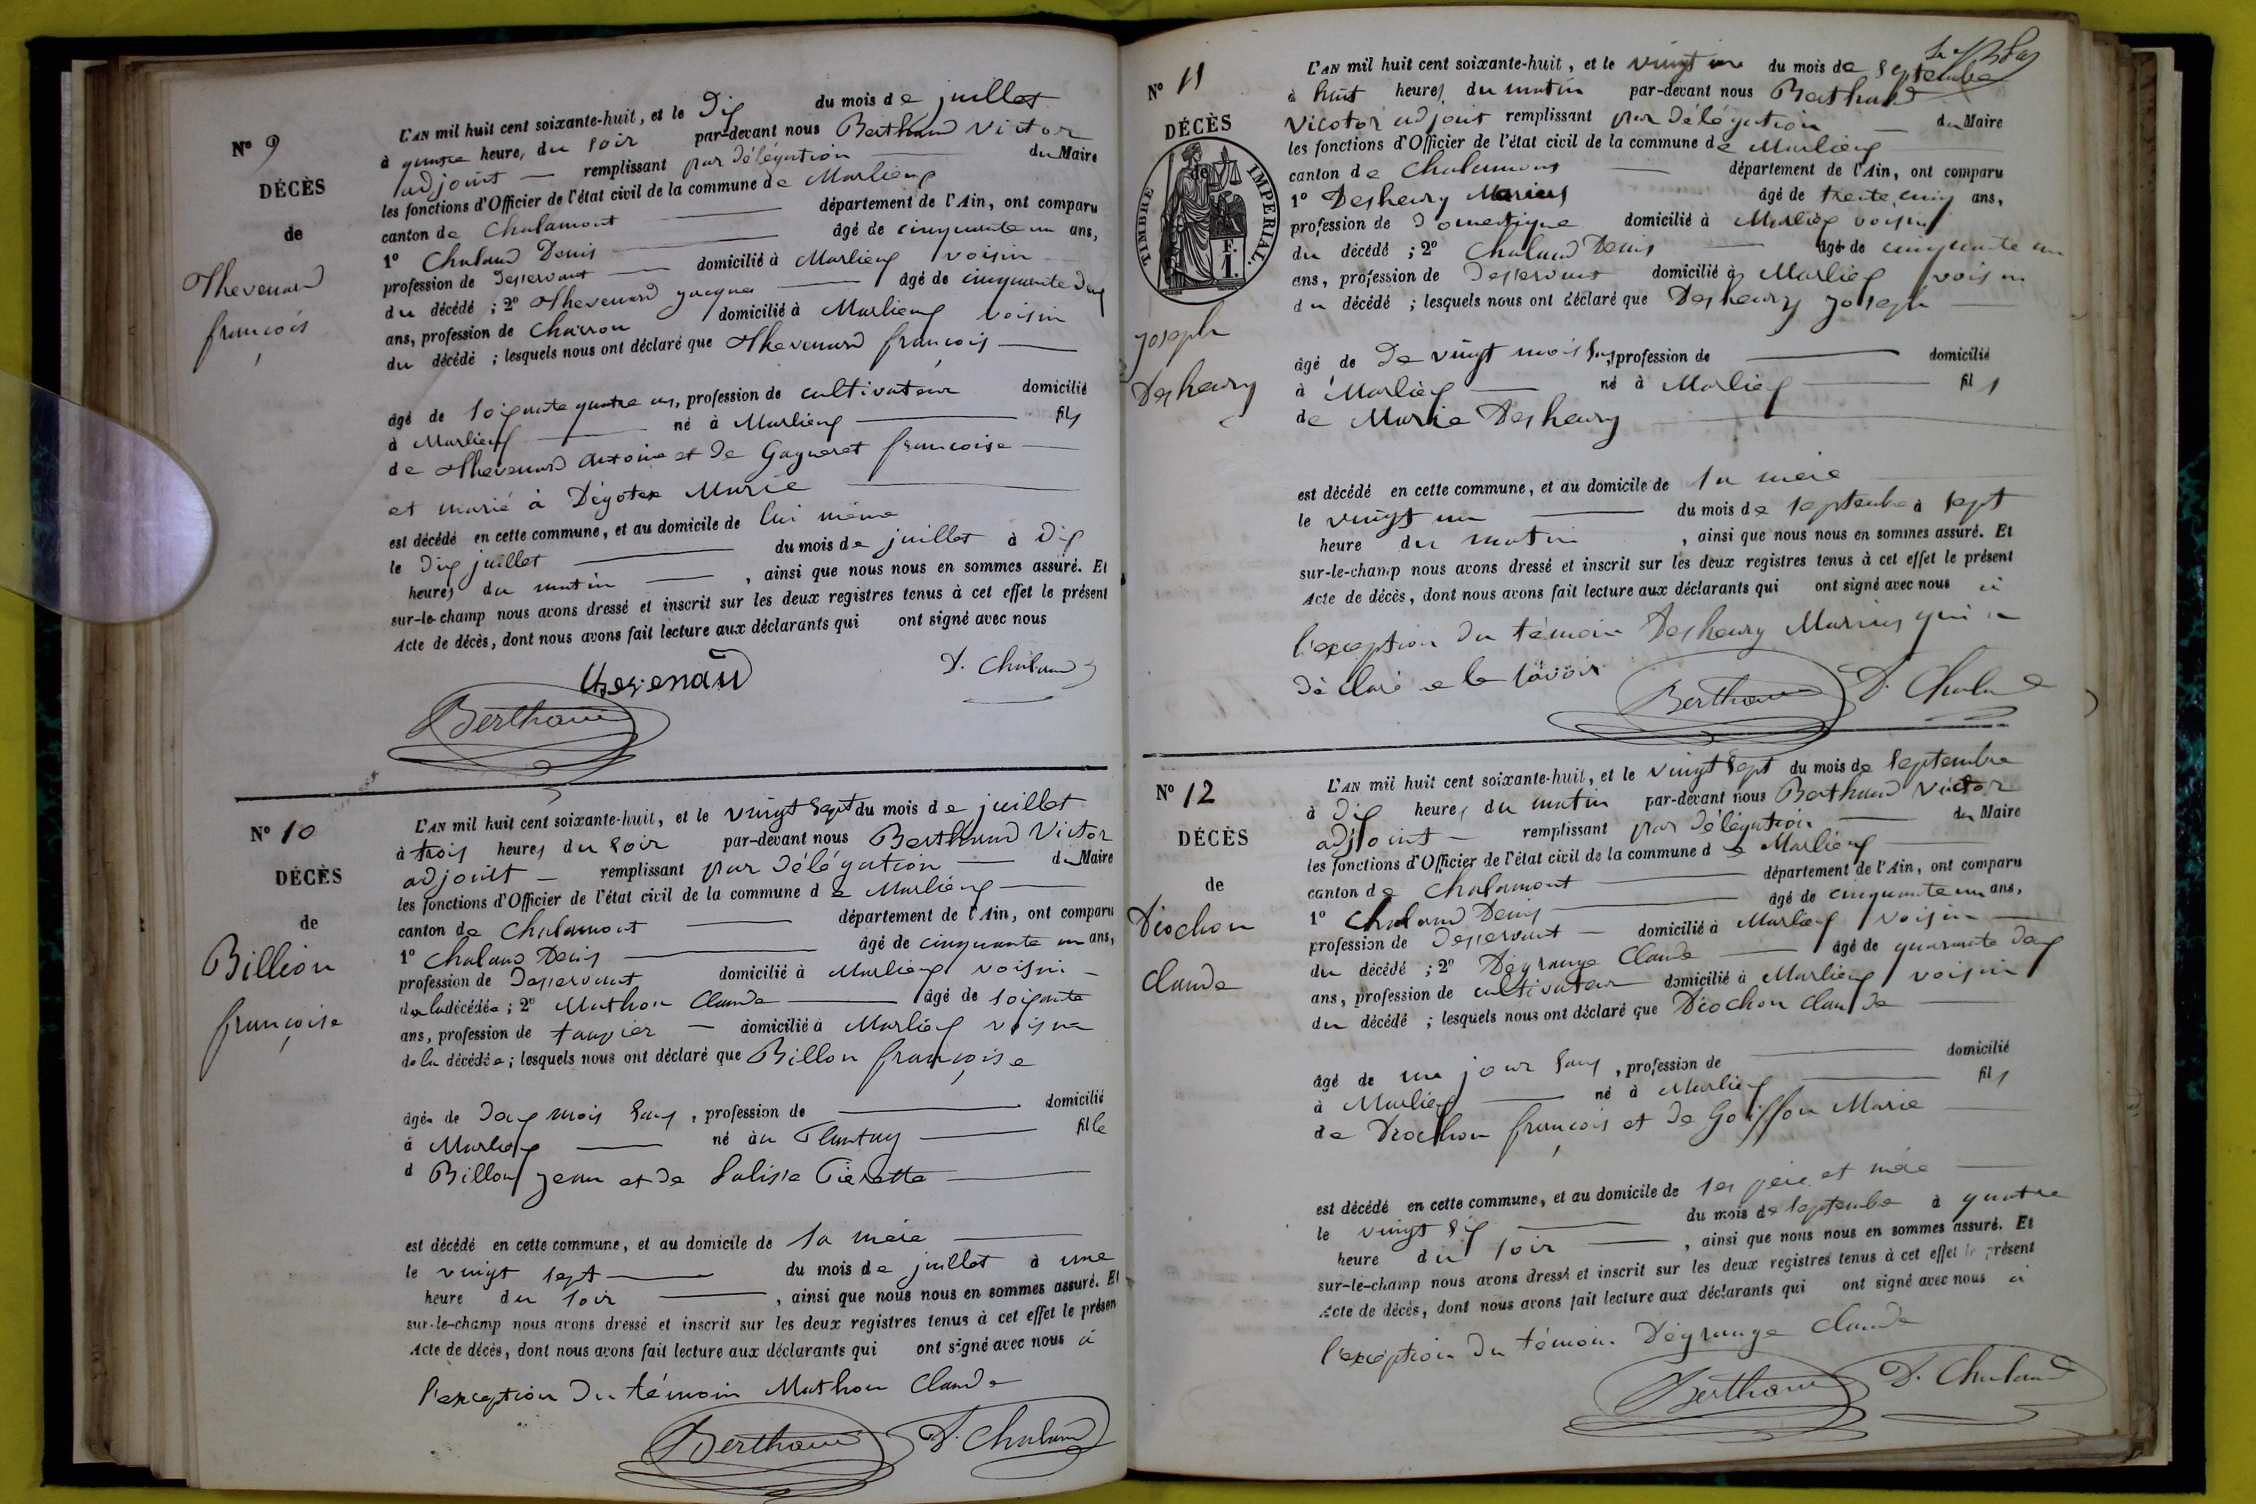 N° 9
DÉCÈS
de
Thevenard
françois
L'AN mil huit cent soixante-huit, et le Dix du mois de juillet
à quatre heure, du soir par-devant nous Berthaud Victor
adjoint remplissant par délégation du Maire
les fonctions d'Officier de l'état civil de la commune de Marlieux
canton de Chalamont département de l'Ain, ont comparu
1° Chaland Denis âgé de cinquante un ans,
profession de desservant domicilié à Marlieux voisin
du décédé ; 2° Thevenard jacques âgé de cinquante deux
ans, profession de Charron domicilié à Marlieux voisin
du décédé ; lesquels nous ont déclaré que Thevenard françois
âgé de soixante quatre ans, profession de cultivateur domicilié
à Marlieux né à Marlieux fils
de Thevenard Antoine et de Gagneret françoise
et marié à Dégotex Marie
est décédé en cette commune, et au domicile de lui même
le dix juillet du mois de juillet à dix
heures du matin , ainsi que nous nous en sommes assuré. Et
sur-le-champ nous avons dressé et inscrit sur les deux registres tenus à cet effet le présent
Acte de décès, dont nous avons fait lecture aux déclarants qui ont signé avec nous
D. Chaland
Berthaud
N° 10
DÉCÈS
de
Billion
françoise
L'AN mil huit cent soixante-huit, et le vingt sept du mois de juillet
à trois heures du soir par-devant nous Berthaud Victor
adjoint remplissant par délégation du Maire
les fonctions d'Officier de l'état civil de la commune de Marlieux
canton de Chalamont département de l'Ain, ont comparu
1° Chaland Denis âgé de cinquante un ans,
profession de desservant domicilié à Marlieux voisin
de la décédée ; 2° Mathon Claude âgé de soixante
ans, profession de taupier domicilié à Marlieux voisin
de la décédée ; lesquels nous ont déclaré que Billon françoise
âgée de deux mois sans , profession de domicilié
à Marlieux né au Plantay fille
d Billon jean et de Pierette
est décédé en cette commune, et au domicile de sa mère
le vingt sept du mois de juillet à une
heure du soir , ainsi que nous nous en sommes assuré. Et
sur-le-champ nous avons dressé et inscrit sur les deux registres tenus à cet effet le présen
Acte de décès, dont nous avons fait lecture aux déclarants qui ont signé avec nous à
l'exception du témoin Mathon Claude
Berthaud D. Chaland
N° 11
DÉCÈS
de
TIMBRE IMPÉRIAL
joseph
Desheury
L'AN mil huit cent soixante-huit, et le vingt un du mois de septembre
à huit heures du matin par-devant nous Berthaud
Vicotor adjoint remplissant par délégation du Maire
les fonctions d'Officier de l'état civil de la commune de Marlieux
canton de Chalamont département de l'Ain, ont comparu
1° Desheury Marius âgé de trente cinq ans,
profession de domestique domicilié à Marlieux voisin
du décédé ; 2° Chaland Denis âgé de cinquante un
ans, profession de desservant domicilié à Marlieux voisin
du décédé ; lesquels nous ont déclaré que Desheury joseph
âgé de de vingt mois sans, profession de domicilié
à Marlieux né à Marlieux fils
de Marie Desheury
est décédé en cette commune, et au domicile de sa mère
le vingt un du mois de septembre à sept
heure du matin , ainsi que nous nous en sommes assuré. Et
sur-le-champ nous avons dressé et inscrit sur les deux registres tenus à cet effet le présent
Acte de décès, dont nous avons fait lecture aux déclarants qui ont signé avec nous à
l'exception du témoin Desheury Marius qui a
déclaré ne le savoir
Berthaud D. Chaland
N° 12
DÉCÈS
de
Diochon
Claude
L'AN mil huit cent soixante-huit, et le vingt sept du mois de septembre
à dix heures du matin par-devant nous Berthaud Victor
adjoint remplissant par délégation du Maire
les fonctions d'Officier de l'état civil de la commune de Marlieux
canton de Chalamont département de l'Ain, ont comparu
1° Chaland Denis âgé de cinquante un ans,
profession de desservant domicilié à Marlieux voisin
du décédé ; 2° Dégrange Claude âgé de quarante deux
ans, profession de cultivateur domicilié à Marlieux voisin
du décédé ; lesquels nous ont déclaré que Diochon Claude
âgé de un jour sans , profession de domicilié
à Marlieux né à Marlieux fils
de Diochon françois et de Goiffon Marie
est décédé en cette commune, et au domicile de ses père et mère
le vingt six du mois de septembre à quatre
heure du soir , ainsi que nous nous en sommes assuré. Et
sur-le-champ nous avons dressé et inscrit sur les deux registres tenus à cet effet le présent
Acte de décès, dont nous avons fait lecture aux déclarants qui ont signé avec nous à
l'exception du témoin Dégrange Claude
Berthaud D. Chaland